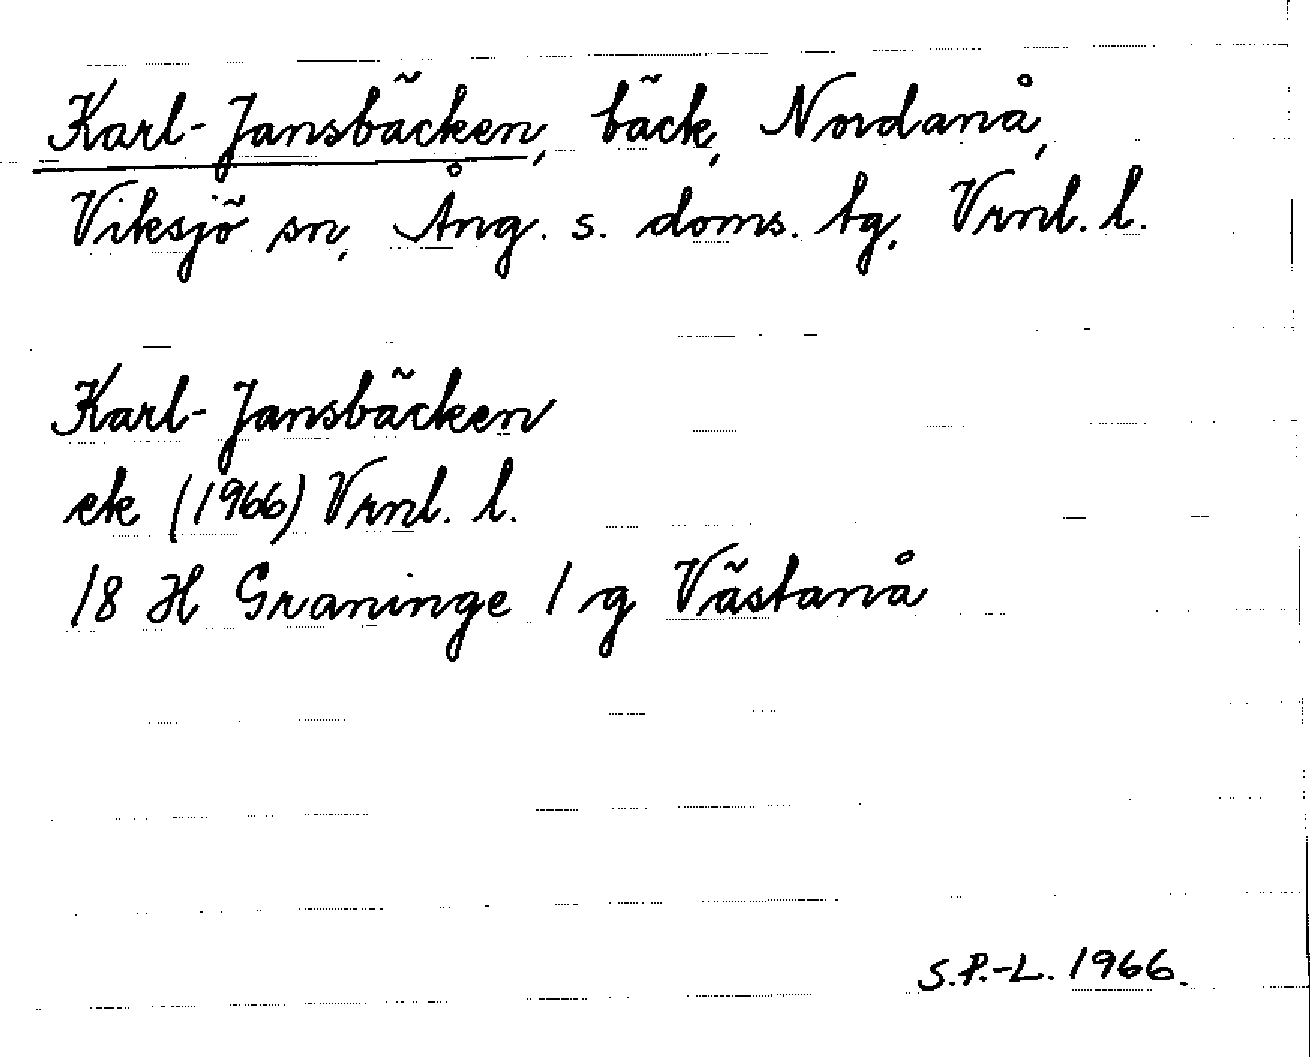 Karl-Jansbäcken, bäck, Nordanå,
Viksjö sn, Ång. s. doms. tg, Vrnl. l.
Karl-Jansbäcken
ek (1966) Vrnl. l.
18 H Graninge 1 g Västanå
S.P.-L. 1966.